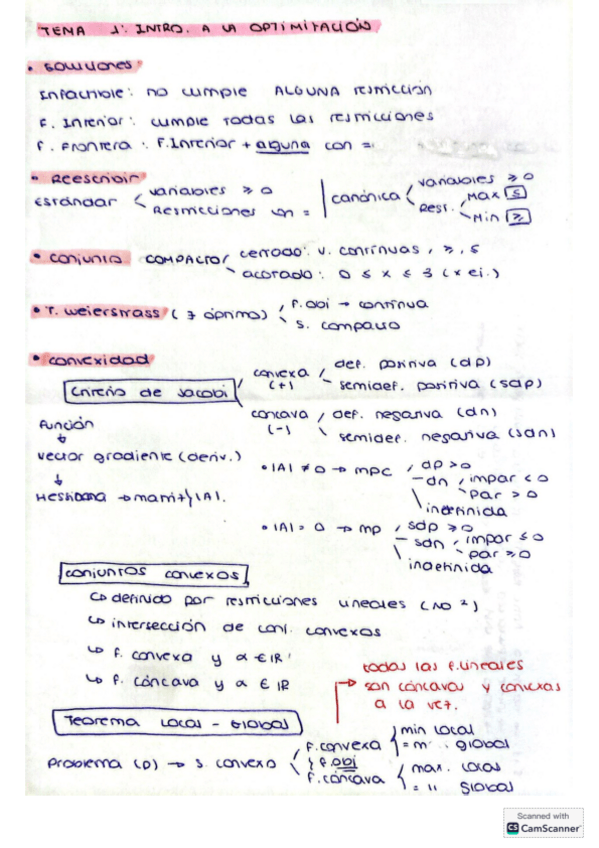 TEMA 1: INTRO. A LA OPTIMIZACIÓN
• SOLUCIONES
Infactible: no cumple ALGUNA restricción
F. Interior: cumple todas las restricciones
F. Frontera: F. Interior + alguna con =
• Reescribir
Estándar variables ≥ 0
Restricciones con =
canónica variables ≥ 0
Rest. Max ≤
Min ≥
• Conjunto COMPACTO cerrado: v. continuas, ≥, ≤
acotado: 0 ≤ x ≤ 3 (x ej.)
• T. Weierstrass (∃ óptimo) f. obj → continua
S. compacto
• Convexidad
Criterio de Jacobi
convexa (+) def. positiva (dp)
semidef. positiva (sdp)
concava (-) def. negativa (dn)
semidef. negativa (sdn)
Función
↓
vector gradiente (deriv.)
↓
Hessiana → matriz y |A|.
• |A| ≠ 0 → mpc dp > 0
dn impar < 0
par > 0
indefinida
• |A| = 0 → mp sdp ≥ 0
sdn impar ≤ 0
par ≥ 0
indefinida
Conjuntos convexos
↳ definido por restricciones lineales (NO ²)
↳ intersección de conj. convexos
↳ f. convexa y α ∈ IR
↳ f. cóncava y α ∈ IR
todas las f. lineales
son cóncavas y convexas
a la vez.
Teorema Local - Global
Problema (P) → S. convexo
f. convexa min local
= m " global
y f. obj
f. cóncava max. local
= " global
Scanned with
CS CamScanner